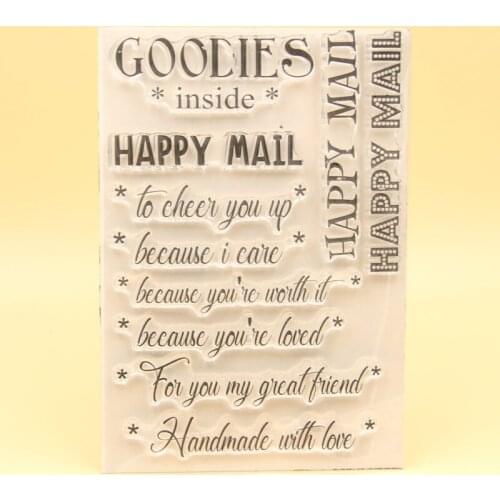 GOODIES
* inside *
HAPPY MAIL
* to cheer you up *
* because i care *
* because you're worth it *
* because you're loved *
* For you my great friend *
* Handmade with love *
HAPPY MAIL
HAPPY MAIL